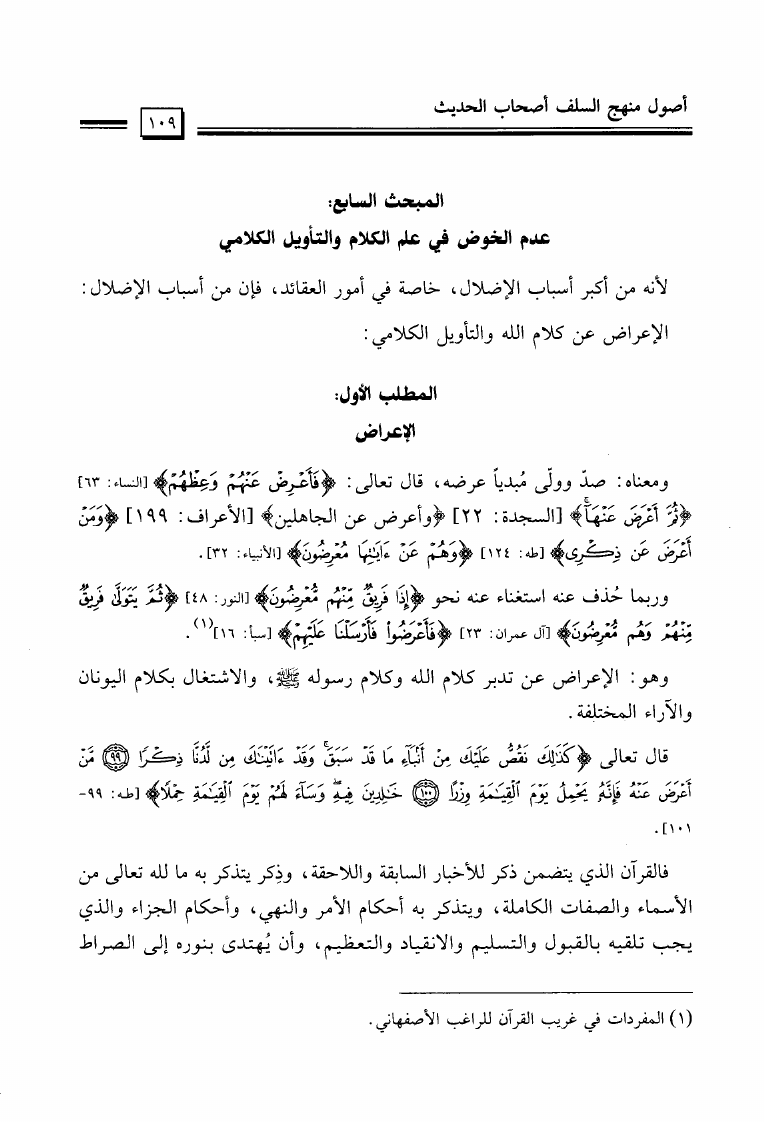 أصول منهج السلف أصحاب الحديث
١٠٩
المبحث السابع:
عدم الخوض في علم الكلام والتأويل الكلامي
لأنه من أكبر أسباب الإضلال، خاصة في أمور العقائد، فإن من أسباب الإضلال:
الإعراض عن كلام الله والتأويل الكلامي:
المطلب الأول:
الإعراض
ومعناه: صدّ وولّى مُبدياً عرضه، قال تعالى: ﴿فَأَعْرِضْ عَنْهُمْ وَعِظْهُمْ﴾ [النساء: ٦٣]
﴿ثُرَّ أَعْرَضَ عَنْهَآ﴾ [السجدة: ٢٢] ﴿وأعرض عن الجاهلين﴾ [الأعراف: ١٩٩] ﴿وَمَنْ
أَعْرَضَ عَن ذِكْرِى﴾ [طه: ١٢٤] ﴿وَهُمْ عَنْ ءَايَٰتِهَا مُعْرِضُونَ﴾ [الأنبياء: ٣٢].
وربما حُذف عنه استغناء عنه نحو ﴿إِذَا فَرِيقٌ مِّنْهُم مُّعْرِضُونَ﴾ [النور: ٤٨] ﴿ثُمَّ يَتَوَلَّى فَرِيقٌ
مِّنْهُمْ وَهُم مُّعْرِضُونَ﴾ [آل عمران: ٢٣] ﴿فَأَعْرَضُوا۟ فَأَرْسَلْنَا عَلَيْهِمْ﴾ [سبأ: ١٦](١).
وهو: الإعراض عن تدبر كلام الله وكلام رسوله ﷺ، والاشتغال بكلام اليونان
والآراء المختلفة.
قال تعالى ﴿كَذَٰلِكَ نَقُصُّ عَلَيْكَ مِنْ أَنۢبَآءِ مَا قَدْ سَبَقَ ۚ وَقَدْ ءَاتَيْنَٰكَ مِن لَّدُنَّا ذِكْرًا ﴿٩٩﴾ مَّنْ
أَعْرَضَ عَنْهُ فَإِنَّهُۥ يَحْمِلُ يَوْمَ ٱلْقِيَٰمَةِ وِزْرًا ﴿١٠٠﴾ خَٰلِدِينَ فِيهِ ۖ وَسَآءَ لَهُمْ يَوْمَ ٱلْقِيَٰمَةِ حِمْلًا﴾ [طه: ٩٩-
١٠١].
فالقرآن الذي يتضمن ذكر للأخبار السابقة واللاحقة، وذِكر يتذكر به ما لله تعالى من
الأسماء والصفات الكاملة، ويتذكر به أحكام الأمر والنهي، وأحكام الجزاء والذي
يجب تلقيه بالقبول والتسليم والانقياد والتعظيم، وأن يُهتدى بنوره إلى الصراط
(١) المفردات في غريب القرآن للراغب الأصفهاني.